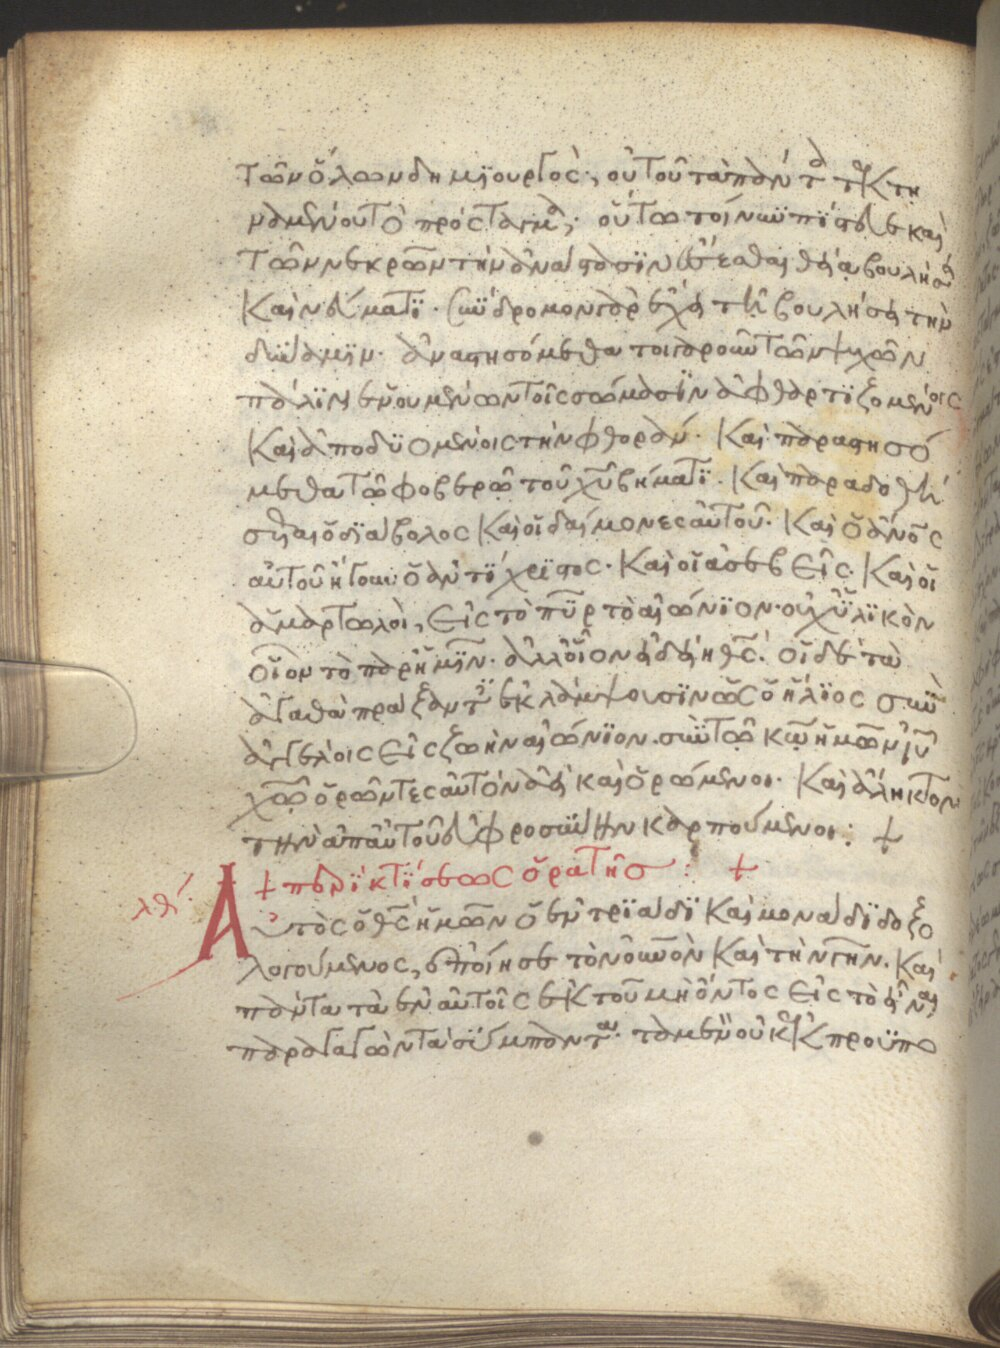 τῶν ὅλων δημϊουργὸς, οὗτοῦ τὰ πάντα τεκτη
ναμένου τὸ πρόσταγμα; οὕτω τοίνυν πϊστευε καὶ
τῶν νεκρῶν τὴν ἀνάστασϊν ἔσεσθαι θεία βουλήσει
καὶ νεύματϊ. σύνδρομον γὰρ ἔχει τῆ βουλήσει τὴν
δύναμϊν. ἀναστησόμεθα τοιγαροῦν τῶν ψυχῶν
πάλϊν ἑνουμένων τοῖς σώμασϊν ἀφθαρτϊζομένοις
καὶ ἀποδϋομένοις τὴν φθοράν. καὶ παραστησό
μεθα τῶ φοβερῶ τοῦ χῦ βήματϊ. καὶ παραδοθή
σεται ὁ δϊάβολος καὶ οἱ δαίμονες αὐτοῦ. καὶ ὁ ἄνος
αὐτοῦ ἤγουν ὁ ἀντϊχρϊστος. καὶ οἱ ἀσεβεῖς. καὶ οἱ
ἁμαρτωλοὶ, εἰς τὸ πῦρ τὸ αἰώνϊον. οὐχ ὑλϊκὸν
οἷον τὸ παρ' ἡμῖν. ἀλλ' οἷον εἰδείη θς. οἱ δὲ τὰ
ἀγαθὰ πράξαντες ἐκλάμψουσϊν ὡς ὁ ἥλϊος σὺν
ἀγγέλοις εἰς ζωὴν αἰώνϊον. σὺν τῶ κω ἡμῶν ιῦ
χω ὁρῶντες αὐτὸν ἀεὶ καὶ ὁρώμενοι. καὶ ἄληκτον
τὴν ἀπ' αὐτοῦ εὐφροσύνην καρπούμενοι: +
+ περὶ κτϊσεως ὁρατῆς : +
λθ΄ Αὐτὸς ὁ θς ἡμῶν ὁ ἐν τρϊάδϊ καὶ μονάδϊ δοξο
λογούμενος, ἐποίησε τὸν οὐνὸν καὶ τὴν γῆν. καὶ
πάντα τὰ ἐν αὐτοῖς ἐκ τοῦ μὴ ὄντος εἰς τὸ εἶναι
παραγαγὼν τὰ σύμπαντα. τὰ μὲν οὐκ ἐκ προϋπο